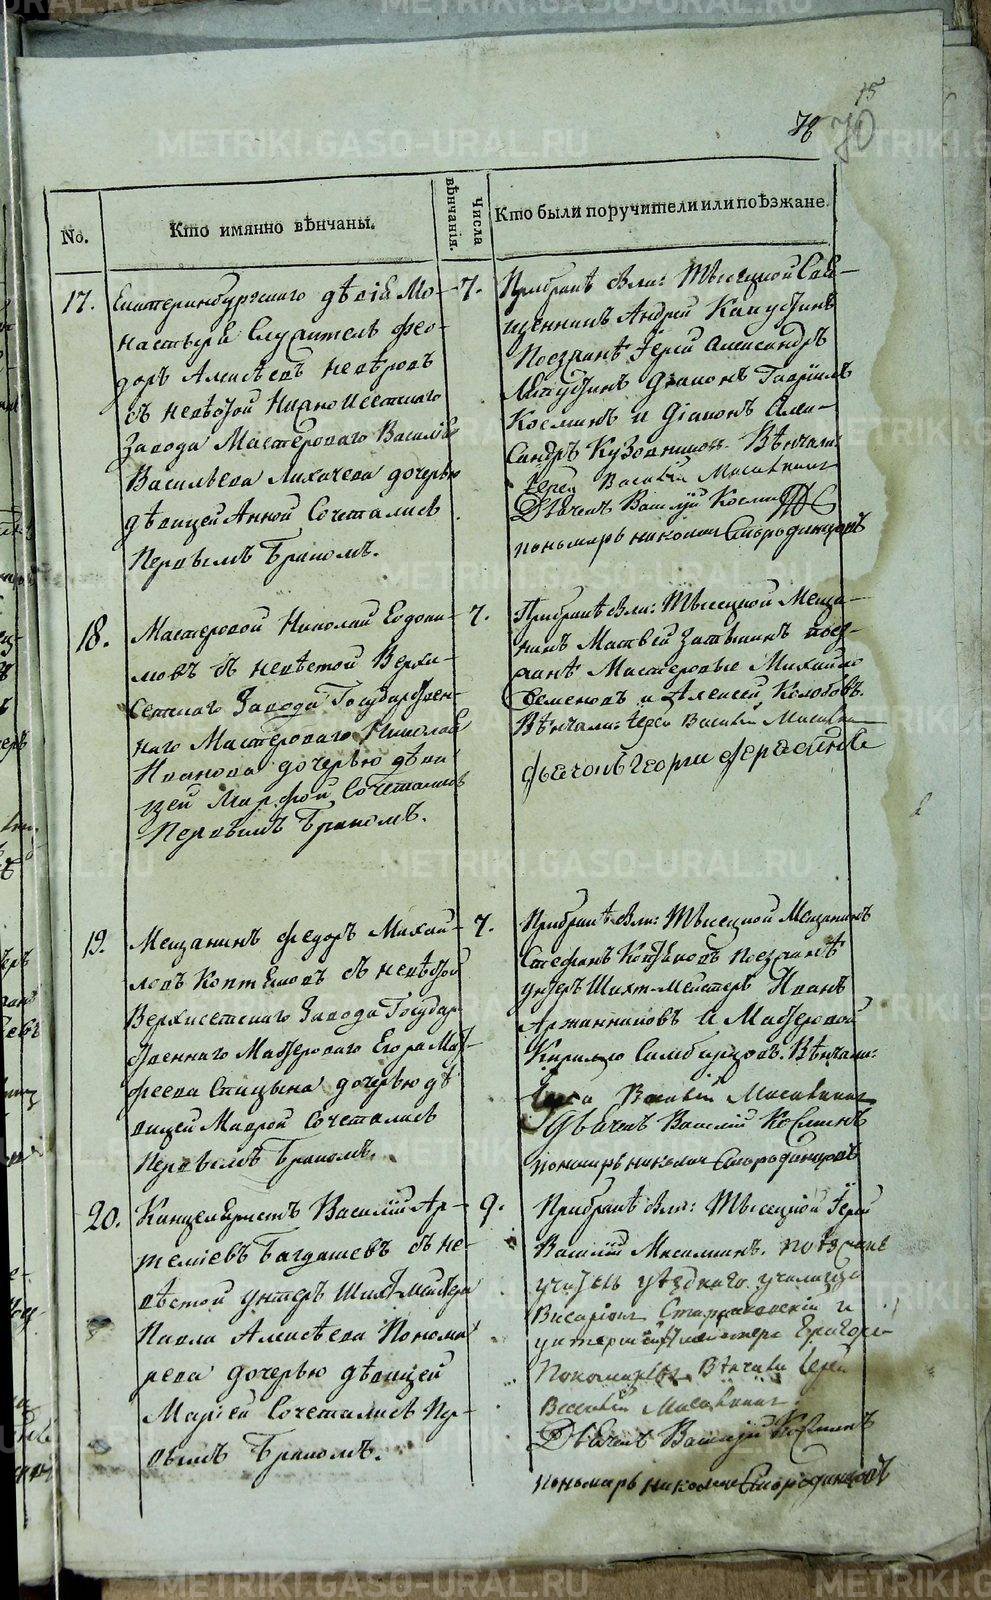 METRIKI.GASO-URAL.RU
15
78 70
No.
Кто имянно вѣнчаны.
Числа вѣнчанія.
Кто были поручители или поѣзжане.
17.
Екатеринбургскаго дѣвія Мо-
настыря Служитель Фео-
доръ Алексѣевъ Невѣровъ
съ невѣстой Нижно Исетскаго
Завода Мастероваго Василья
Васильева Лихачева дочерью
дѣвицей Анной Сочетались
Первымъ бракомъ.
7.
При бракѣ были: Тысецкой Свя-
щенникъ Андрей
Поезжанѣ Іерей Александръ
Діаконъ Гавріилъ
Косминъ и Діаконъ Алек-
сандръ Кузовниковъ Вѣнчали
Іерей Василій
Дьячекъ Василій Косминъ
пономарь николай Смородинцовъ
18.
Мастеровой Николай Евдоки-
мовъ съ невѣстой Верхи-
сетскаго Завода Государствен-
наго Мастероваго Николая
Иванова дочерью дѣви
цей Марфой Сочетались
Первымъ бракомъ.
7.
При бракѣ были: Тысецкой Меща-
нинъ Матвей поез-
жанѣ Мастеровые Михайло
Семеновъ и Алексей Колобовъ.
Вѣнчали: Іерей Василій
Георги
19.
Мещанинъ Федоръ Михай-
ловъ Коптеловъ съ невѣстой
Верхисетскаго Завода Государ-
ственнаго Мастероваго Егора Мат-
феева Спицына дочерью дѣ
вицей Маврой Сочетались
Первымъ бракомъ.
7.
При бракѣ были: Тысецкой Мещанинъ
Стефанъ Поезжанѣ
унтеръ Шихт-Мейстеръ Иванъ
Аржанниковъ и Мастеровой
Кирилло Симбирцовъ. Вѣнчали:
Василій
Дьячекъ Василій Косминъ
пономарь николай Смородинцовъ
20.
Канцеляристъ Василій Ар-
теміевъ Багдашевъ съ не-
вѣстой унтеръ Шихт-Мейстера
Павла Алексѣева Понома
рева дочерью дѣвицей
Маріей Сочетались Пер-
вымъ бракомъ.
9.
При бракѣ были: Тысецкой Іерей
Василій поѣзжане
учитель уѣзднаго училища
и
Григорей
Пономаревъ Вѣнчали Іерей
Василій
Дьячекъ Василій Косминъ
пономарь николай Смородинцовъ